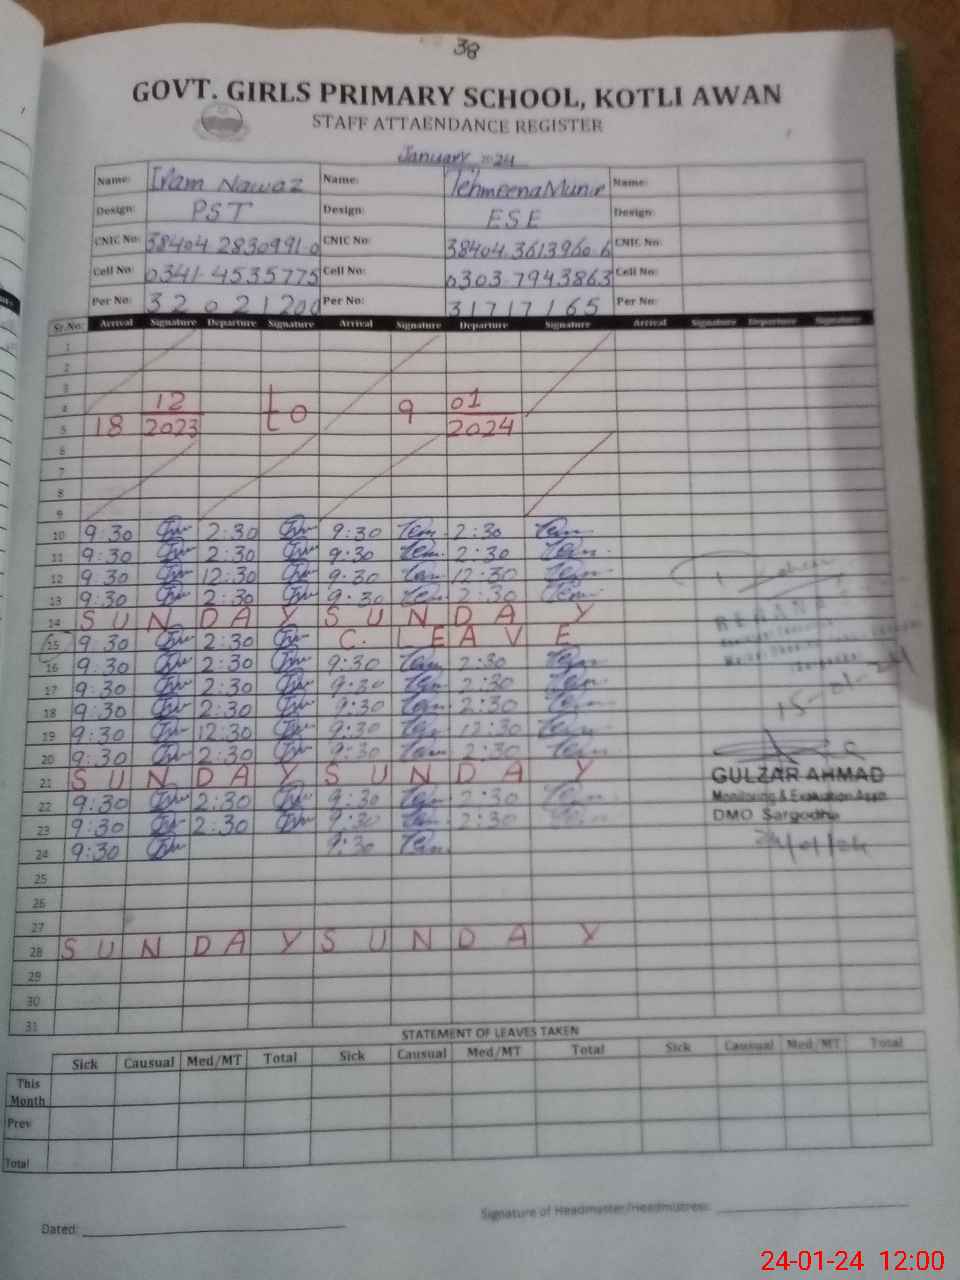 38
GOVT. GIRLS PRIMARY SCHOOL, KOTLI AWAN
STAFF ATTAENDANCE REGISTER
January 2024
Name: Iram Nawaz Name: Tehmeena Munir Name:
Design: PST Design: ESE Design:
CNIC No: 38404 2830991-0 CNIC No: 38404.3613960-6 CNIC No:
Cell No: 0341-4535775 Cell No: 0303-7943863 Cell No:
Per No: 32021200 Per No: 31717165 Per No:
Sr.No: Arrival Signature Departure Signature Arrival Signature Departure Signature Arrival Signature Departure Signature
1
2
3
4 12 to 9 01
5 18 2023 2024
6
7
8
9
10 9:30 2:30 9:30 Tem 2:30 Tem
11 9:30 2:30 9:30 Tem 2:30 Tem
12 9:30 12:30 9:30 Tem 12:30 Tem
13 9:30 2:30 9:30 Tem 2:30 Tem
14 S U N D A Y S U N D A Y
15 9:30 2:30 C. L E A V E
16 9:30 2:30 9:30 Tem 2:30 Tem
17 9:30 2:30 9:30 Tem 2:30 Tem
18 9:30 2:30 9:30 Tem 2:30 Tem
15-01-24
19 9:30 12:30 9:30 Tem 12:30 Tem
20 9:30 2:30 9:30 Tem 2:30 Tem
21 S U N D A Y S U N D A Y
GULZAR AHMAD
22 9:30 2:30 9:30 Tem 2:30 Tem
Monitoring & Evaluation
23 9:30 2:30 9:30 Tem 2:30 Tem
DMO Sargodha
24 9:30 9:30 Tem
24/01/24
25
26
27
28 S U N D A Y S U N D A Y
29
30
31
STATEMENT OF LEAVES TAKEN
Sick Causual Med/MT Total Sick Causual Med/MT Total Sick Causual Med/MT Total
This Month
Prev
Total
Signature of Headmaster/Headmistress:
Dated:
24-01-24 12:00